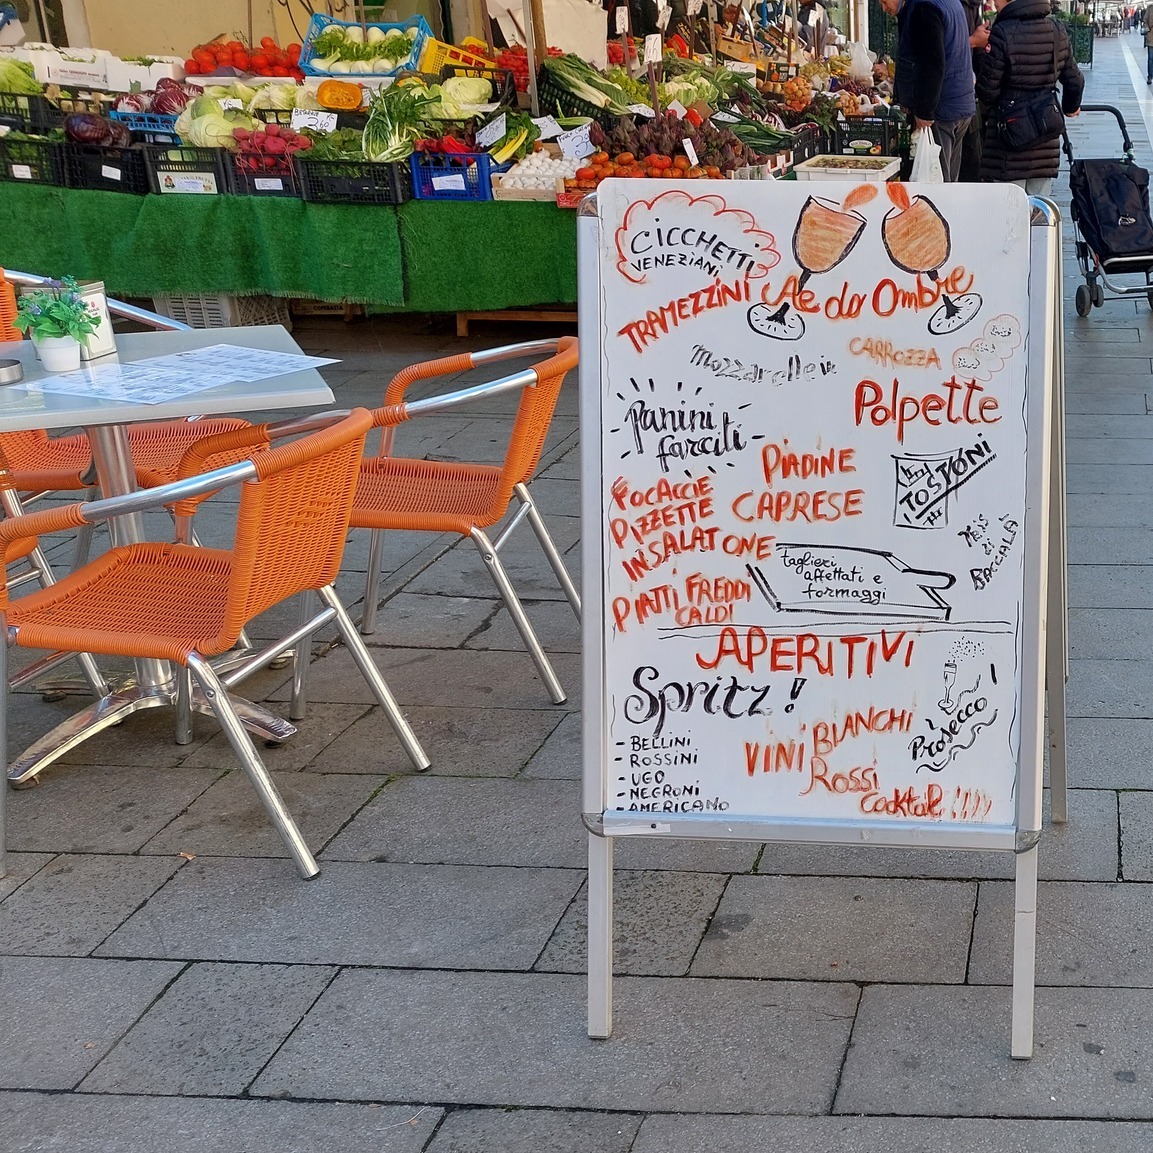 CICCHETTI
VENEZIANI
TRAMEZZINI
Ae do Ombre
Mozzarelle in
CARROZZA
Polpette
Panini
farciti
PIADINE
TOSTONI
FOCACCIE
CAPRESE
PIZZETTE
INSALATONE
TRIS
di
BACCALÀ
taglieri
affettati e
formaggi
PIATTI FREDDI
CALDI
APERITIVI
Spritz!
Prosecco!
- BELLINI
- ROSSINI
- UGO
- NEGRONI
- AMERICANO
VINI BIANCHI
ROSSI
Cocktail !!!!